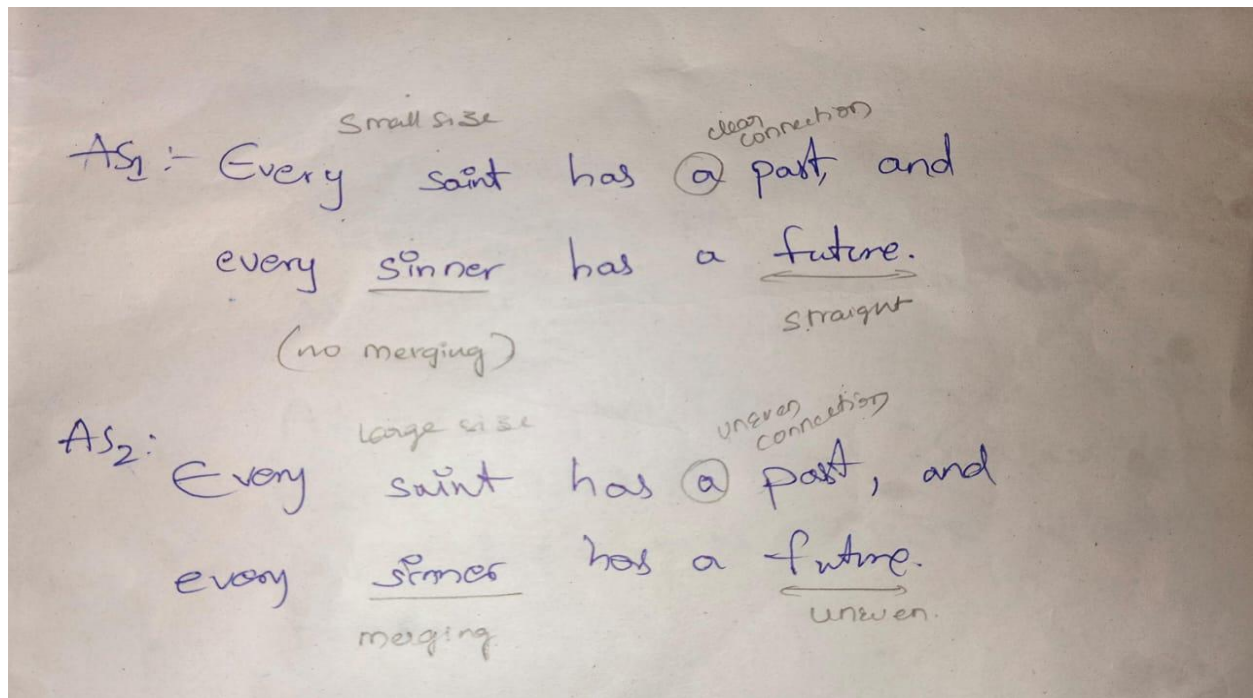 Small size clear connection
AS1:- Every saint has a past, and
every sinner has a future.
(no merging) straight
large size uneven connection
AS2:
Every saint has a past, and
every sinner has a future.
merging uneven.